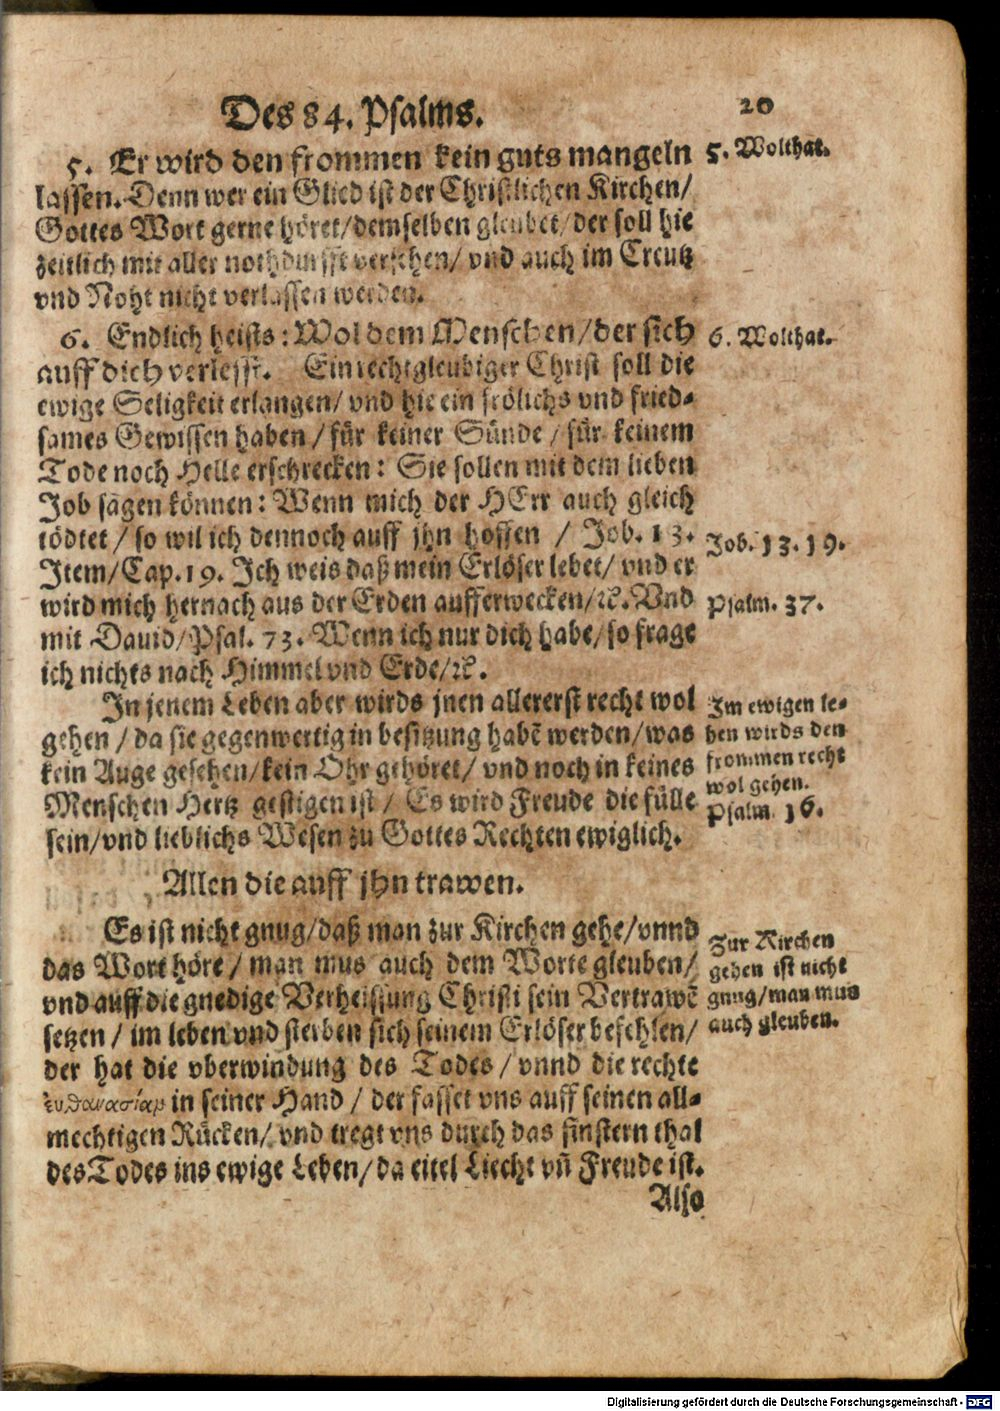 Des 84. Psalms.
20
5. Er wird den frommen kein guts mangeln
lassen. Denn wer ein Glied ist der Christlichen Kirchen/
Gottes Wort gerne höret/demselben gleubet/der soll hie
zeitlich mit aller nothdurfft versehen/ vnd auch im Creutz
vnd Noht nicht verlassen werden.
5. Wolthat.
6. Endlich heists: Wol dem Menschen/der sich
auff dich verlesst. Ein rechtgleubiger Christ soll die
ewige Seligkeit erlangen/ vnd hie ein frölichs vnd fried-
sames Gewissen haben/für keiner Sünde/für keinem
Tode noch Helle erschrecken: Sie sollen mit dem lieben
Job sagen können: Wenn mich der HErr auch gleich
tödtet/so wil ich dennoch auff jhn hoffen / Job. 13.
Item/Cap. 19. Ich weis daß mein Erlöser lebet/ vnd er
wird mich hernach aus der Erden aufferwecken/ꝛc. Vnd
mit Dauid/Psal. 73. Wenn ich nur dich habe/so frage
ich nichts nach Himmel vnd Erde/ꝛc.
6. Wolthat.
Job. 13. 19.
Psalm. 37.
In jenem Leben aber wirds jnen allererst recht wol
gehen/da sie gegenwertig in besitzung habẽ werden/was
kein Auge gesehen/kein Ohr gehöret/ vnd noch in keines
Menschen Hertz gestigen ist/ Es wird Freude die fülle
sein/vnd lieblichs Wesen zu Gottes Rechten ewiglich.
Im ewigen le-
ben wirds den
frommen recht
wol gehen.
Psalm 16.
Allen die auff jhn trawen.
Es ist nicht gnug/daß man zur Kirchen gehe/vnnd
das Wort höre/man mus auch dem Worte gleuben/
vnd auff die gnedige Verheissung Christi sein Vertrawẽ
setzen/im leben vnd sterben sich seinem Erlöser befehlen/
der hat die vberwindung des Todes/vnnd die rechte
ἐυθανασίαμ in seiner Hand/der fasset vns auff seinen all-
mechtigen Rücken/ vnd tregt vns durch das finstern thal
des Todes ins ewige Leben/da eitel Liecht vñ Freude ist.
Zur Kirchen
gehen ist nicht
gnug/man mus
auch gleuben.
Also
Digitalisierung gefördert durch die Deutsche Forschungsgemeinschaft - DFG